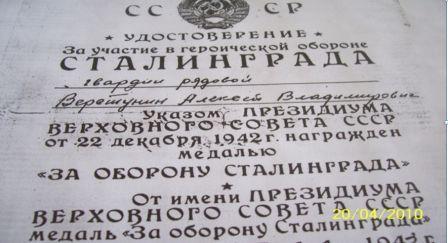 СС СР
★ УДОСТОВЕРЕНИЕ ★
За участие в героической обороне
СТАЛИНГРАДА
гвардии рядовой
Верешунин Алексей Владимирович
Указом ПРЕЗИДИУМА
ВЕРХОВНОГО СОВЕТА СССР
от 22 декабря 1942 г. награжден
медалью
«ЗА ОБОРОНУ СТАЛИНГРАДА»
★
От имени ПРЕЗИДИУМА
ВЕРХОВНОГО СОВЕТА СССР
медаль «За оборону Сталинграда
1943 г.
20/04/2010